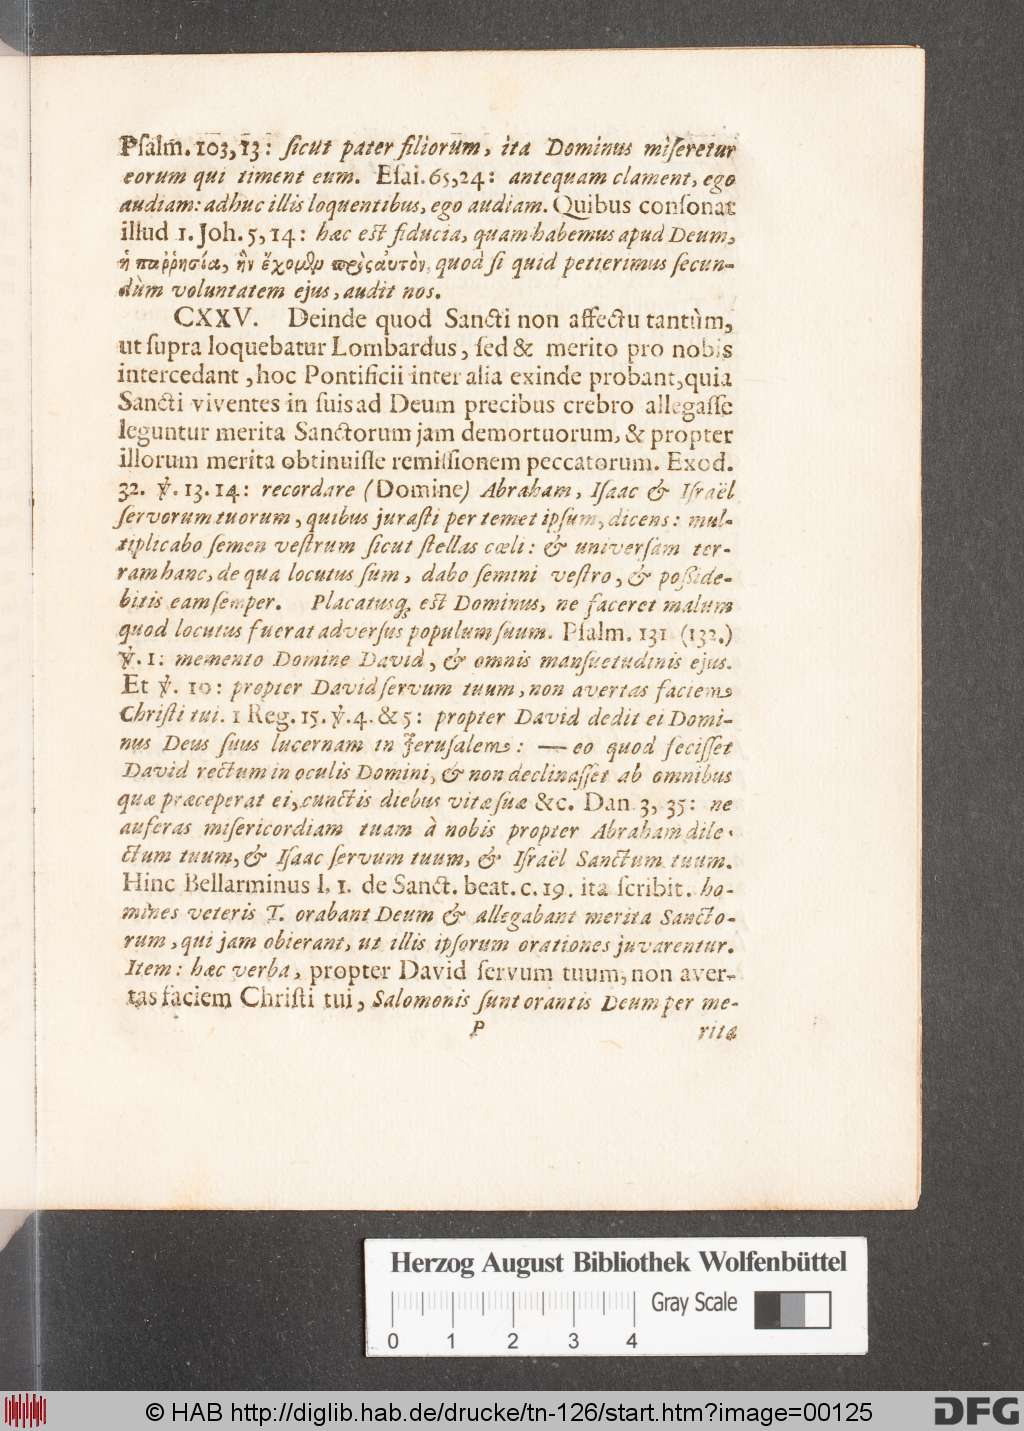 Pſalm. 103, 13: ſicut pater filiorum, ita Dominus miſeretur
eorum qui timent eum. Eſai. 65, 24: antequam clament, ego
audiam: adhuc illis loquentibus, ego audiam. Quibus conſonat
illud 1. Joh. 5, 14: hæc eſt fiducia, quam habemus apud Deum,
ἡ παῤῥησία, ἣν ἔχομϑρ πρὸς αὐτὸν, quod ſi quid petierimus ſecun-
dùm voluntatem ejus, audit nos.
CXXV. Deinde quod Sancti non affectu tantùm,
ut ſupra loquebatur Lombardus, ſed & merito pro nobis
intercedant, hoc Pontificii inter alia exinde probant, quia
Sancti viventes in ſuis ad Deum precibus crebro allegaſſe
leguntur merita Sanctorum jam demortuorum, & propter
illorum merita obtinuiſſe remiſſionem peccatorum. Exod.
32. ℣. 13. 14: recordare (Domine) Abraham, Iſaac & Iſraël
ſervorum tuorum, quibus juraſti per temet ipſum, dicens: mul-
tiplicabo ſemen veſtrum ſicut ſtellas cœli: & univerſam ter-
ram hanc, de qua locutus ſum, dabo ſemini veſtro, & poſſide-
bitis eam ſemper. Placatusq; eſt Dominus, ne faceret malum
quod locutus fuerat adverſus populum ſuum. Pſalm. 131 (132.)
℣. 1: memento Domine David, & omnis manſuetudinis ejus.
Et ℣. 10: propter David ſervum tuum, non avertas faciem
Chriſti tui. 1 Reg. 15. ℣. 4. & 5: propter David dedit ei Domi-
nus Deus ſuus lucernam in Jeruſalem: — eo quod feciſſet
David rectum in oculis Domini, & non declinaſſet ab omnibus
quæ præceperat ei, cunctis diebus vitæ ſuæ &c. Dan. 3, 35: ne
auferas miſericordiam tuam à nobis propter Abraham dile-
ctum tuum, & Iſaac ſervum tuum, & Iſraël Sanctum tuum.
Hinc Bellarminus l. 1. de Sanct. beat. c. 19. ita ſcribit. ho-
mines veteris T. orabant Deum & allegabant merita Sancto-
rum, qui jam obierant, ut illis ipſorum orationes juvarentur.
Item: hæc verba, propter David ſervum tuum, non aver-
tas faciem Chriſti tui, Salomonis ſunt orantis Deum per me-
P rita
Herzog August Bibliothek Wolfenbüttel
Gray Scale
0 1 2 3 4
© HAB http://diglib.hab.de/drucke/tn-126/start.htm?image=00125
DFG